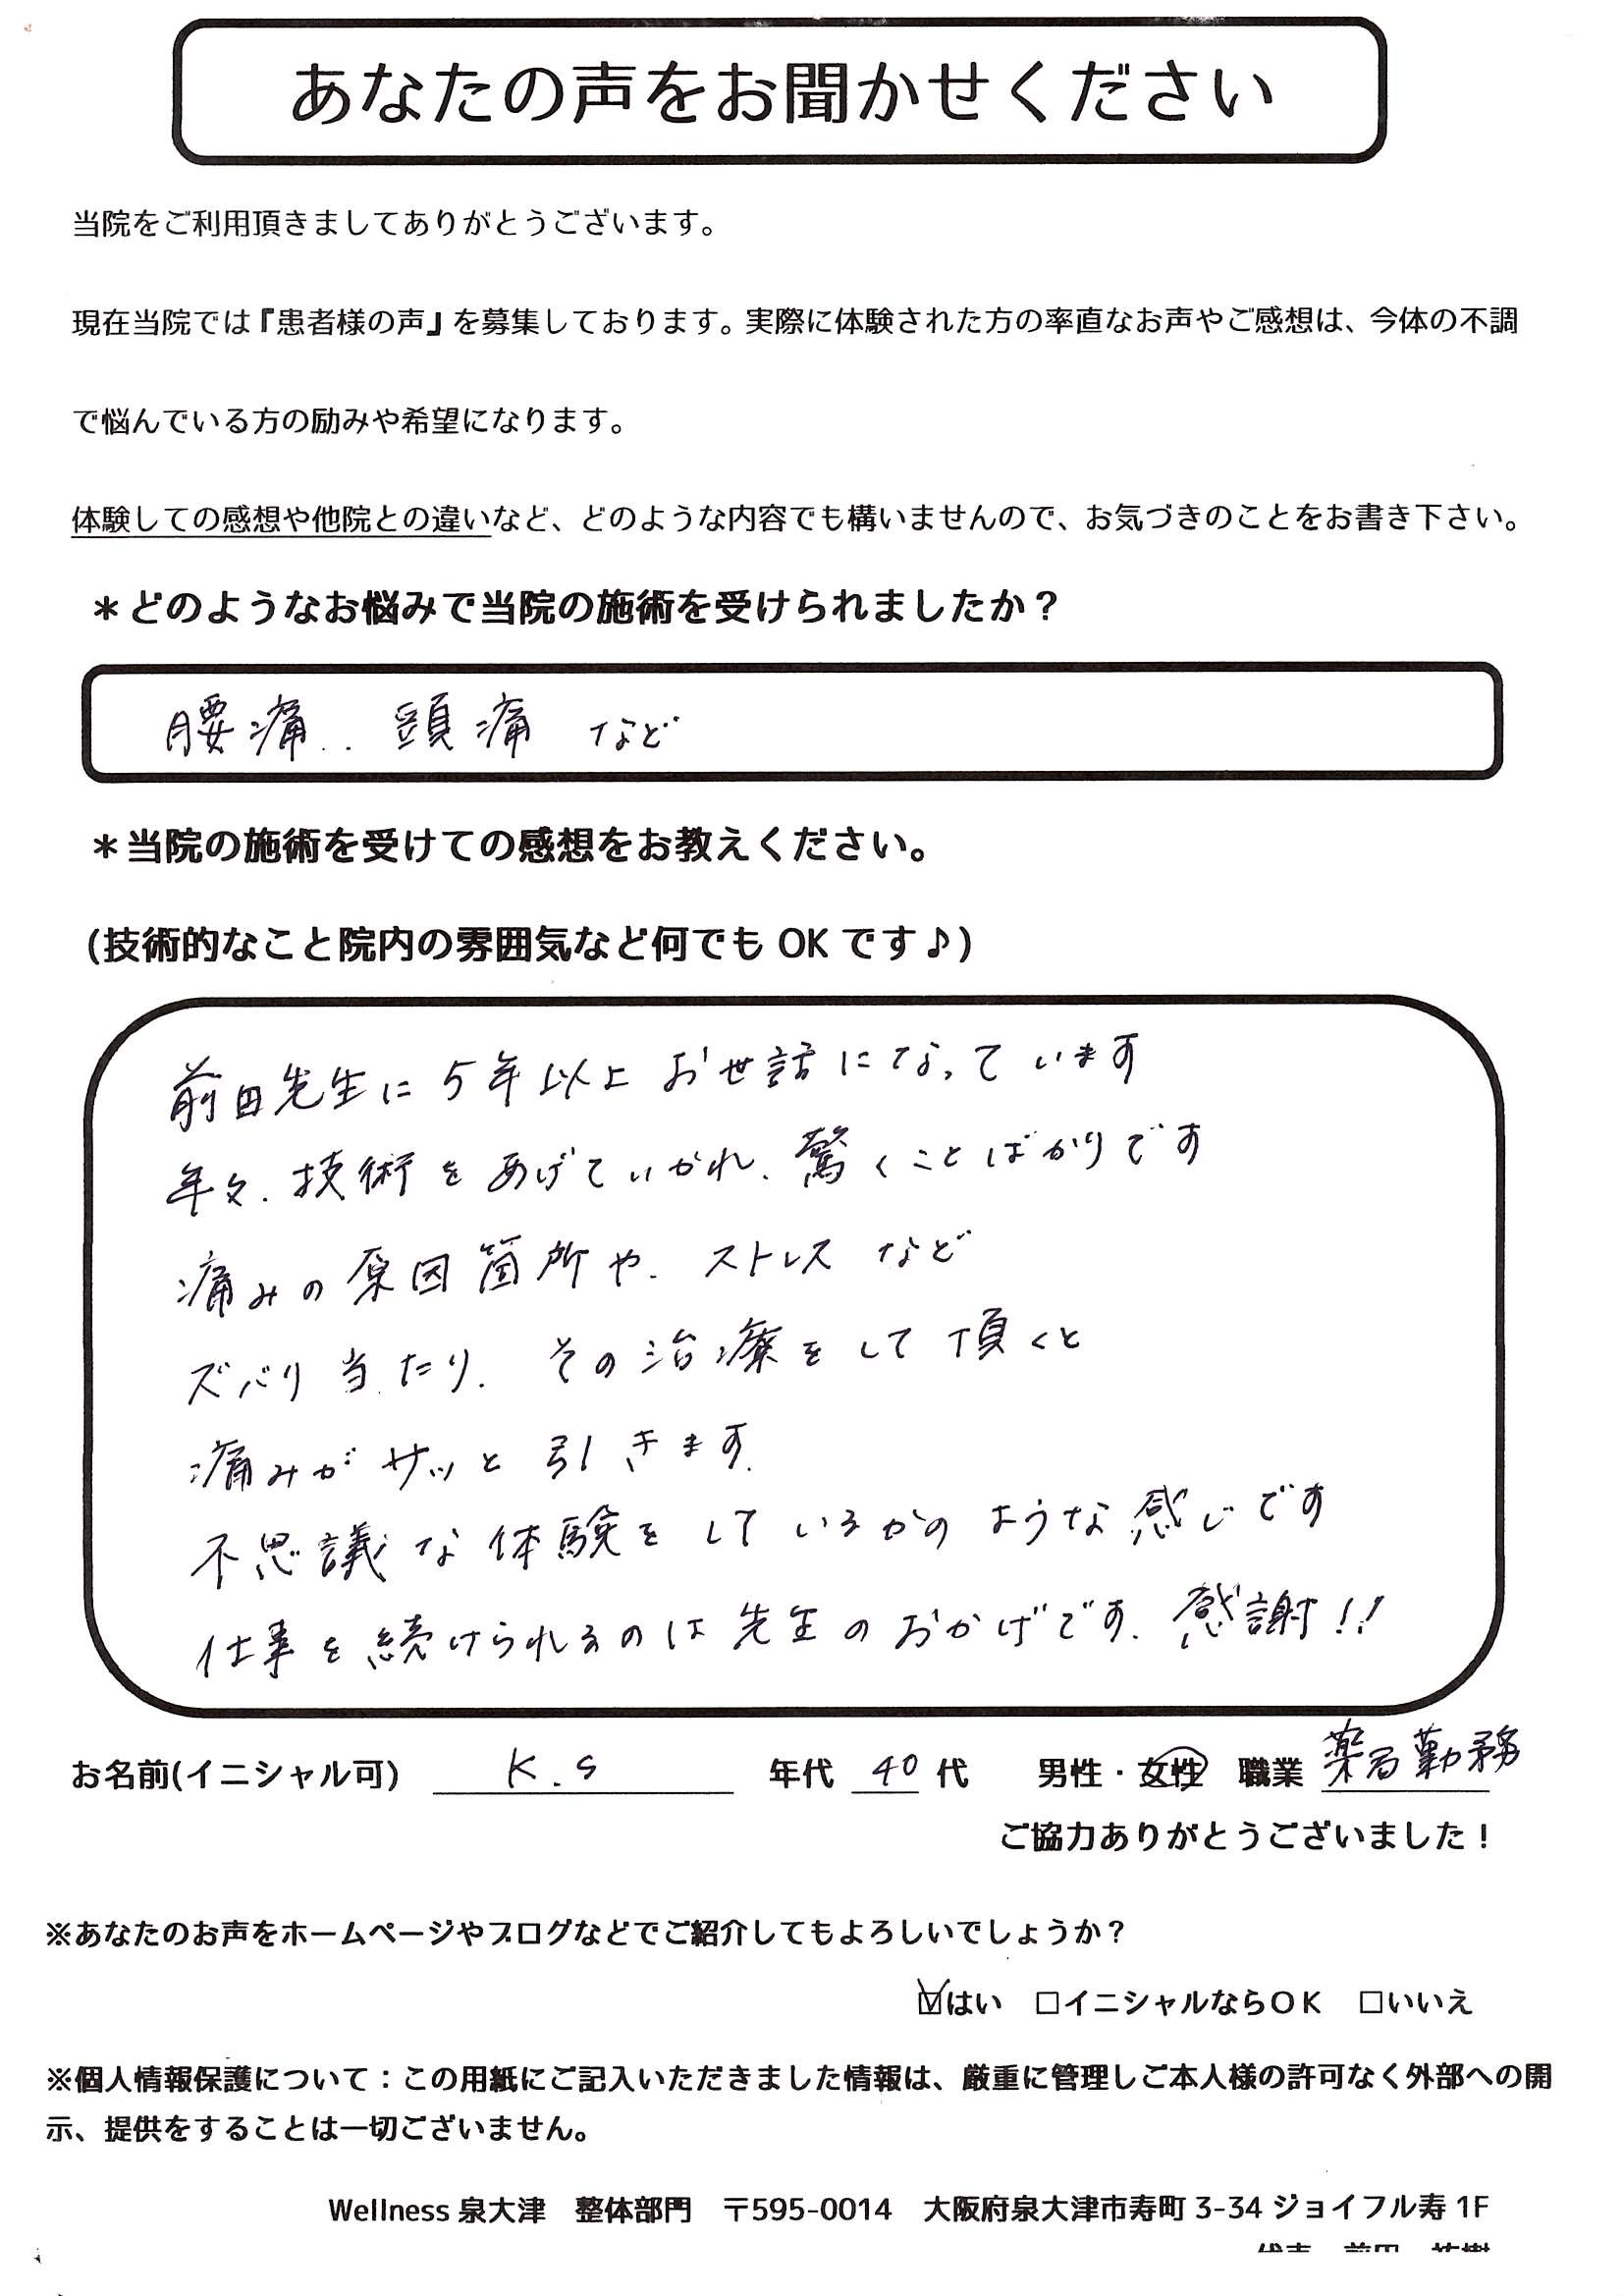 あなたの声をお聞かせください
当院をご利用頂きましてありがとうございます。
現在当院では『患者様の声』を募集しております。実際に体験された方の率直なお声やご感想は、今体の不調
で悩んでいる方の励みや希望になります。
体験しての感想や他院との違いなど、どのような内容でも構いませんので、お気づきのことをお書き下さい。
＊どのようなお悩みで当院の施術を受けられましたか？
腰痛.. 頭痛 など
＊当院の施術を受けての感想をお教えください。
(技術的なこと院内の雰囲気など何でも OK です♪)
前田先生に 5年以上 お世話になっています
年々、技術をあげていかれ、驚くことばかりです
痛みの原因箇所や、ストレス など
ズバリ当たり、その治療をして頂くと
痛みがサッと引きます。
不思議な体験をしているかのような感じです
仕事を続けられるのは先生のおかげです。感謝!!
お名前(イニシャル可) K.S 年代 40 代 男性・女性 職業 薬局勤務
ご協力ありがとうございました！
※あなたのお声をホームページやブログなどでご紹介してもよろしいでしょうか？
☑はい □イニシャルならＯＫ □いいえ
※個人情報保護について：この用紙にご記入いただきました情報は、厳重に管理しご本人様の許可なく外部への開
示、提供をすることは一切ございません。
Wellness 泉大津 整体部門 〒595-0014 大阪府泉大津市寿町 3-34 ジョイフル寿 1F